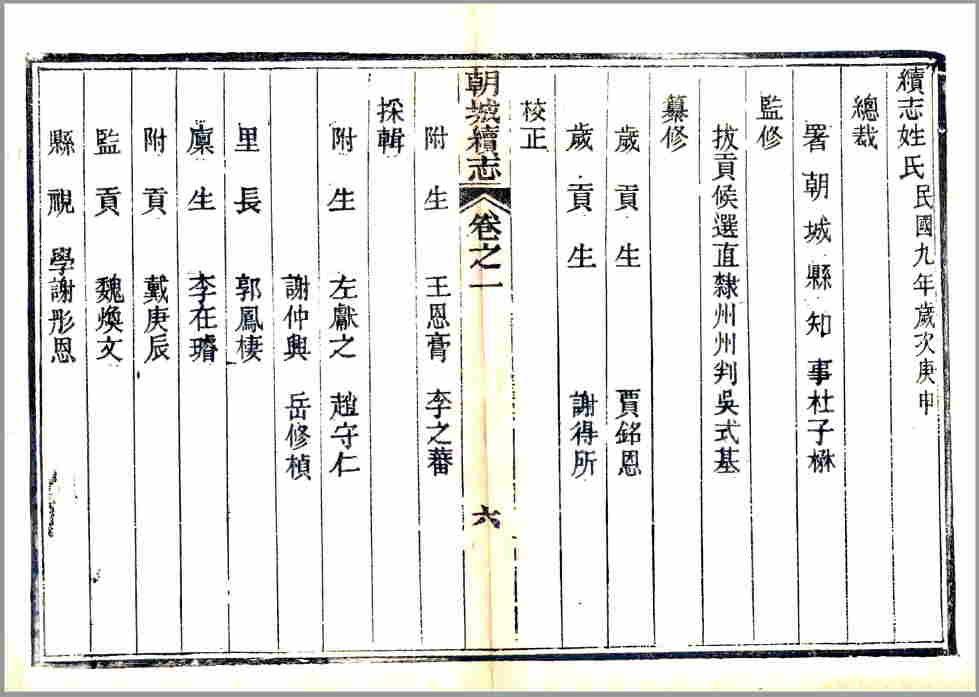 續志姓氏民國九年歲次庚申
總裁
署朝城縣知事杜子楙
監修
拔貢候選直隸州州判吳式基
纂修
歲貢生賈銘恩
歲貢生謝得所
校正
朝城續志卷之一六
附生王恩膏李之蕃
採輯
附生左獻之趙守仁
謝仲輿岳修楨
里長郭鳳棲
廩生李在璿
附貢戴庚辰
監貢魏煥文
縣視學謝彤恩